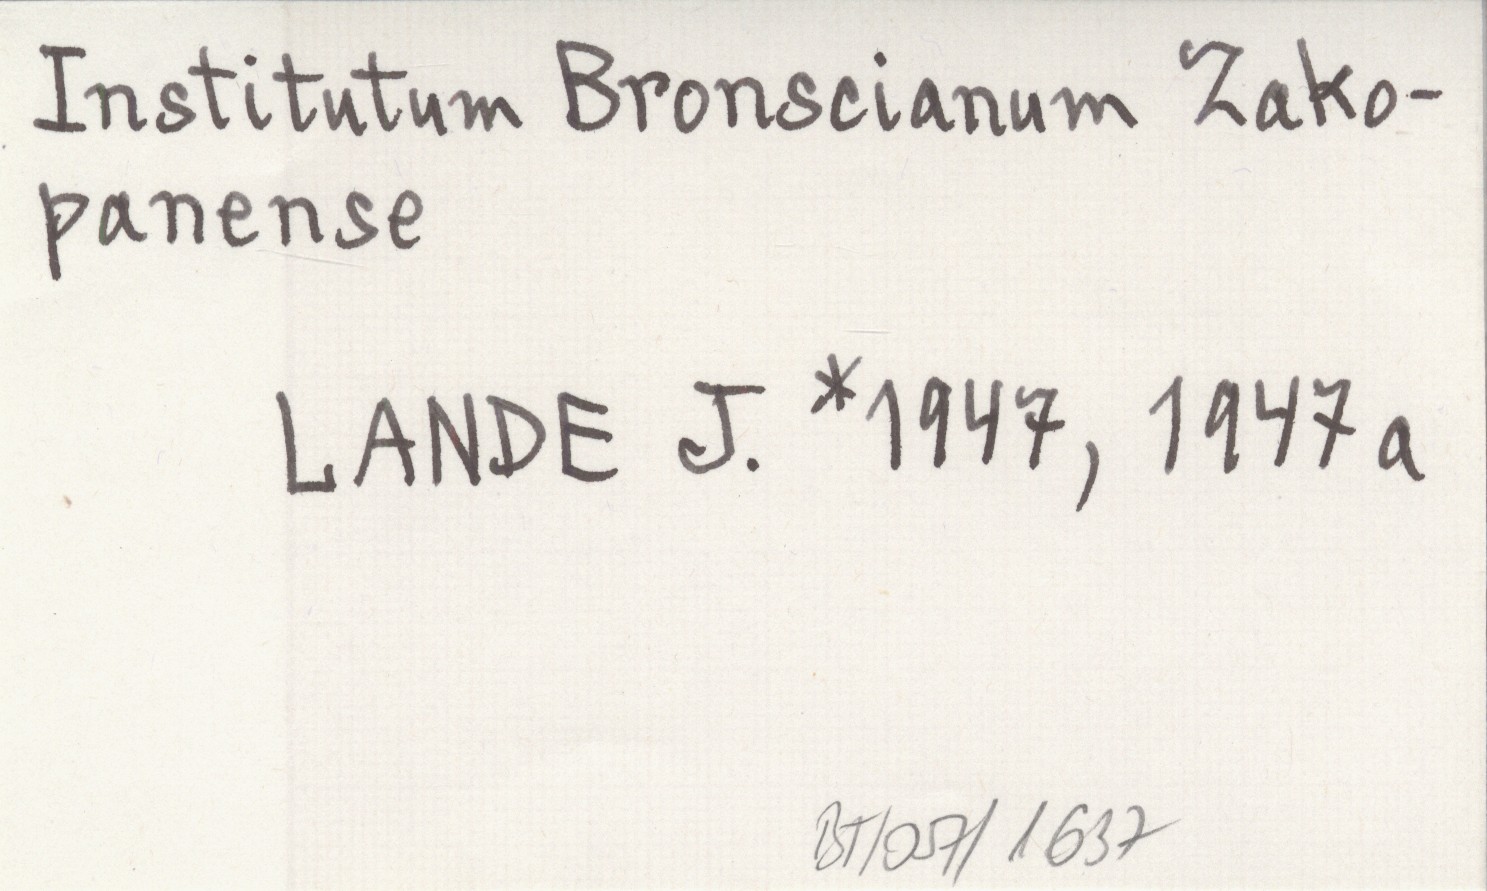 Institutum Bronscianum Zako-
panense
LANDE J. *1947, 1947a
BT/057/1637